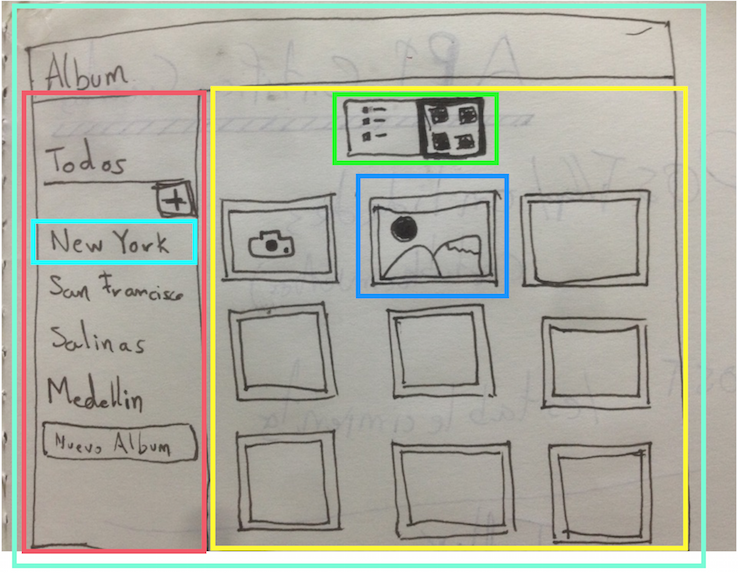 Album
Todos
+
New York
San Francisco
Salinas
Medellin
Nuevo Album